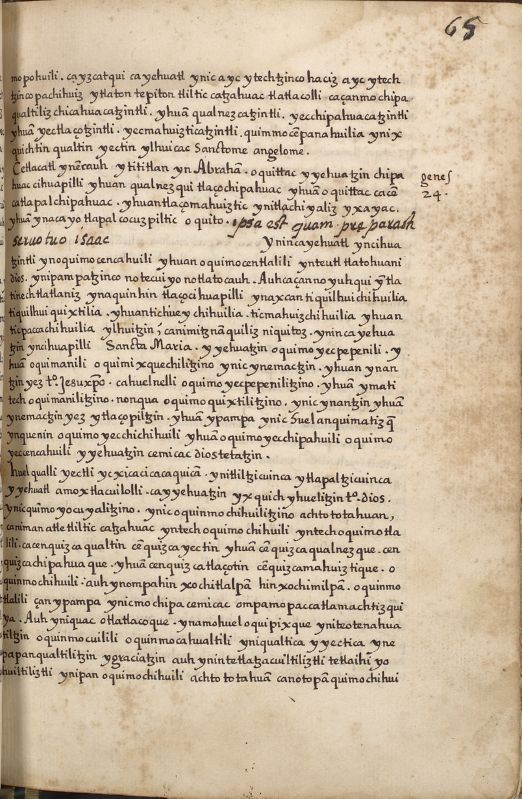 65
mopohuili. cayzcatqui cayehuatl ynic ayc ytechtzinco haciz ayc ytech
tzinco pachihuiz ytlaton tepiton tliltic catzahuac tlatlacolli caçan mochipa
qualtiliz chicahuacatzintli. yhuā qualnezcatzintli. yecchipahuacatzintli
yhuā yectlaçotzintli. yecmahuizticatzintli. quimmocēpanahuilia ynix
quichtin qualtin yectin ylhuicac Sanctome angelome.
Cetlacatl ynēcauh ytititlan yn Abrahā. oquittac yyehuatzin chipa
huac cihuapilli yhuan qualnezqui tlaçochipahuac yhuā oquittac cacē
catlapalchipahuac. yhuan tlaçomahuiztic ynitlachiyaliz yxayac.
yhuā ynacayo tlapalcocuzpiltic oquito. ipsa est quam preparasti
genes
24.
servo tuo isaac
Ynin cayehuatl yncihua
tzintli ynoquimocencahuili yhuan oquimocentlalili ynteutl tlatohuani
dios. ynipampatzinco notecuiyo notlatocauh. Auh caçanno yuhqui ȳtla
tinechtlatlaniz ynaquin hin tlaçocihuapilli ynaxcan tiquilhuichihuilia
tiquilhuiquixtilia. yhuan tichueychihuilia. ticmahuizchihuilia yhuan
ticpaccachihuilia ylhuitzin? canimitznāquiliz niquitoz. ynin cayehua
tzin yncihuapilli Sancta Maria. yyehuatzin oquimoyecpepenili. y
huā oquimanili oquimixquechilitzino ynic ynemactzin. yhuan ynan
tzin yez to. Jesu xpō. cahuelnelli oquimoyecpepenilitzino. yhuā ymati
tech oquimanilitzino. nonqua oquimoquixtilitzino. ynic ynantzin yhuā
ynemactzin yez ytlaçopiltzin. yhuā ypampa ynic huel anquimatizq̄
ynquenin oquimoyecchichihuili yhuā oquimoyecchipahuili oquimo
yeccencahuili yyehuatzin cemicac dios tetatzin.
huel qualli yectli ycxicacicacaquicā. ynitliltzicuinca ytlapaltzicuinca
yyehuatl amoxtlacuilolli. cayyehuatzin yxquich yhuelitzin to. dios.
ynicquimoyocuyalitzino. ynic oquinmochihuilitzino achtototahuan,
caniman atle tliltic catzahuac yntech oquimochihuili yntech oquimotla
lili. cacenquizcaqualtin cēquizcayectin yhuā cēquizcaqualnezque. cen
quizcachipahuaque. yhuā cenquizcatlaçotin cēquizcamahuiztique. o
quinmochihuili. auh ynompahin xochitlalpā hin xochimilpā. oquinmo
tlalili çan ypampa ynic mochipa cemicac ompa mopaccatlamachtizqui
ya. Auh yniquac otlatlacoque. ynamo huel oquipixque yniteotenahua
tiltzin oquinmocuilili oquinmocahualtili yniqualtica yyectica yne
papanqualtilitzin ygraciatzin auh ynintetlatzacuiltiliztli tetlaihiyo
huiltiliztli ynipan oquimochihuili achtototahuā canotopā quimochihui